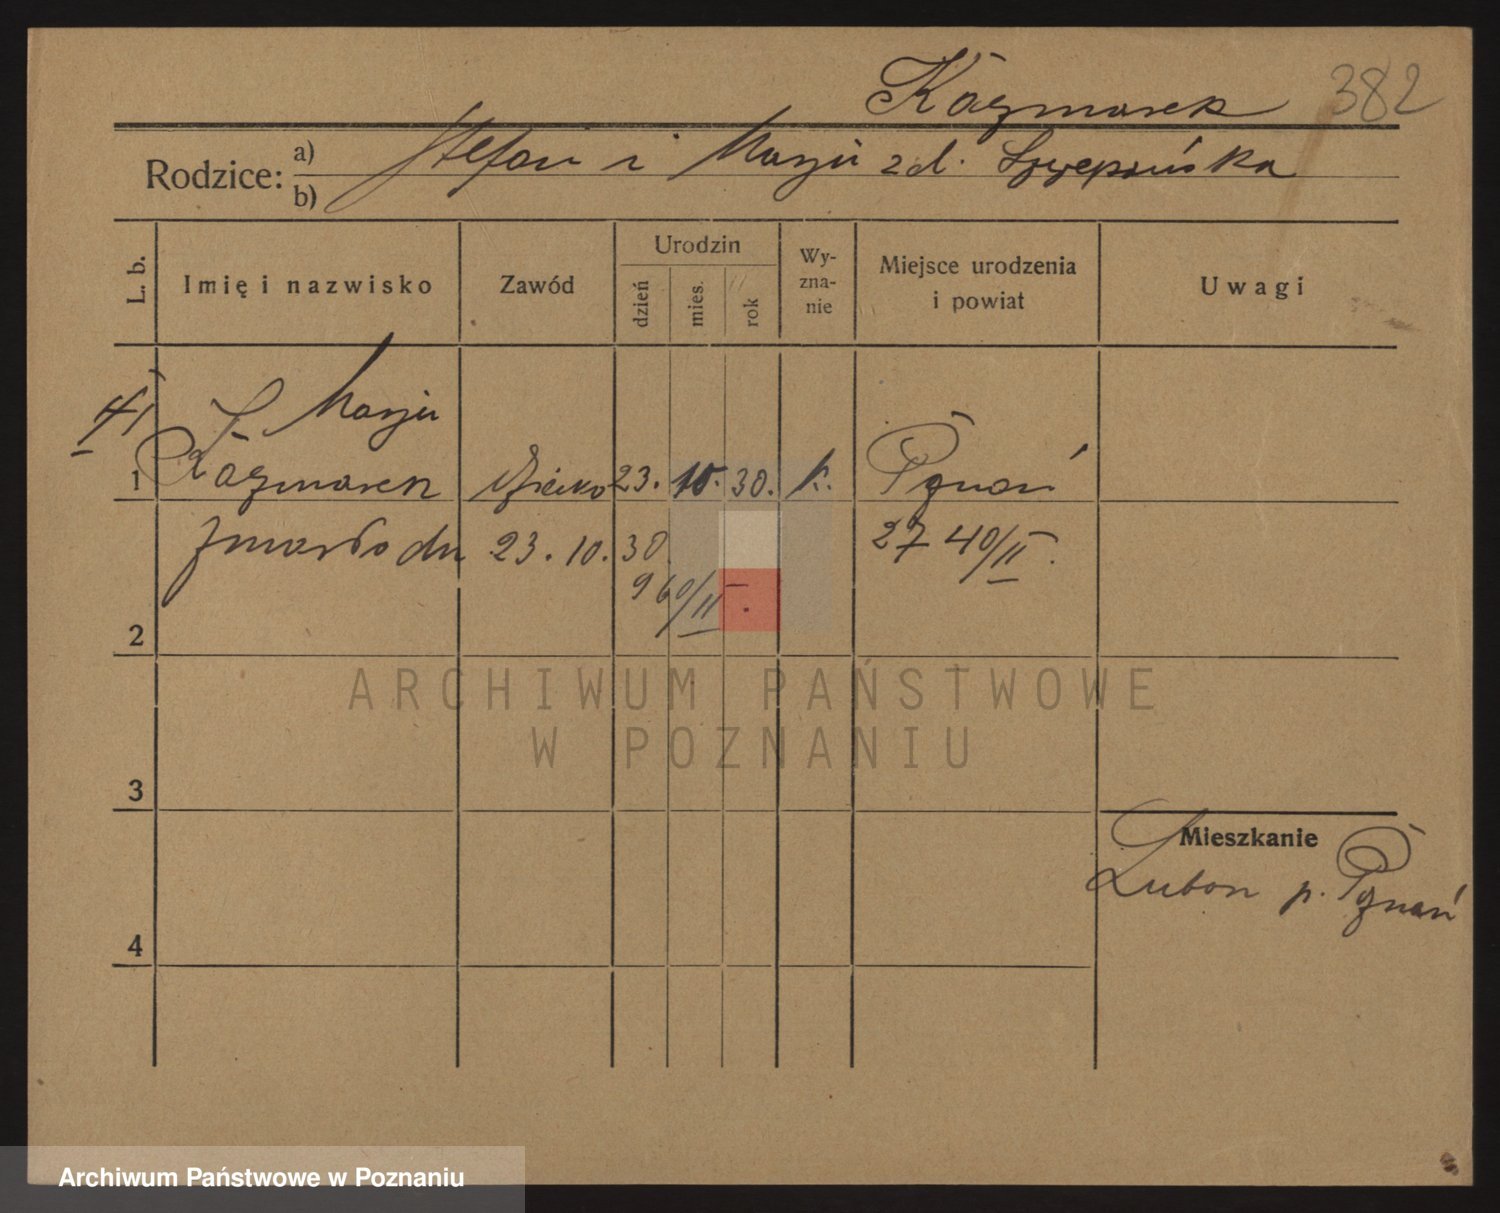 Kaczmarek 382
Rodzice: a) Stefan i Marja zd. Szczepańska
b)
L. b. Imię i nazwisko Zawód Urodzin dzień mies. rok Wy-zna-nie Miejsce urodzenia i powiat Uwagi
Marja
1 Kaczmarek dziecko 23. 10. 30. k. Poznań
zmarło dn 23. 10. 30 2740/II.
960/II.
2
ARCHIWUM PAŃSTWOWE
W POZNANIU
3
Mieszkanie
Luboń p. Poznań
4
Archiwum Państwowe w Poznaniu